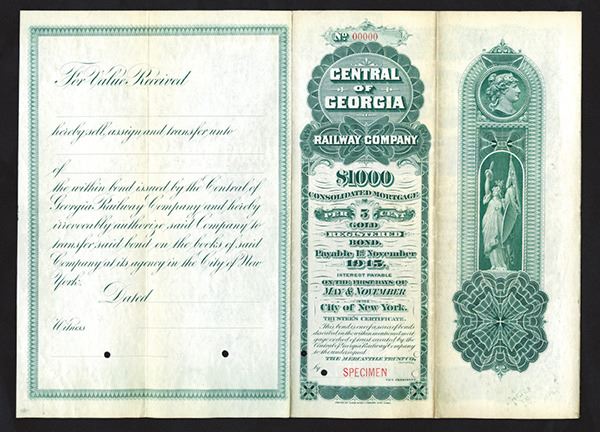 For Value Received
hereby sell, assign and transfer unto
of
the within bond issued by the Central of
Georgia Railway Company and hereby
irrevocably authorize said Company to
transfer said bond on the books of said
Company at its agency in the City of New
York.
Dated
Witness
No 00000
CENTRAL
OF
GEORGIA
RAILWAY COMPANY
$1000
CONSOLIDATED MORTGAGE
PER 5 CENT
GOLD
REGISTERED
BOND.
Payable, 1st November
1945.
INTEREST PAYABLE
ON THE FIRST DAYS OF
MAY & NOVEMBER
IN THE
City of New York.
TRUSTEE'S CERTIFICATE.
This bond is one of a series of bonds
described in the within mentioned mort-
gage or deed of trust executed by the
Central of Georgia Railway Company
to the undersigned
THE MERCANTILE TRUST CO.
by
SPECIMEN
VICE PRESIDENT